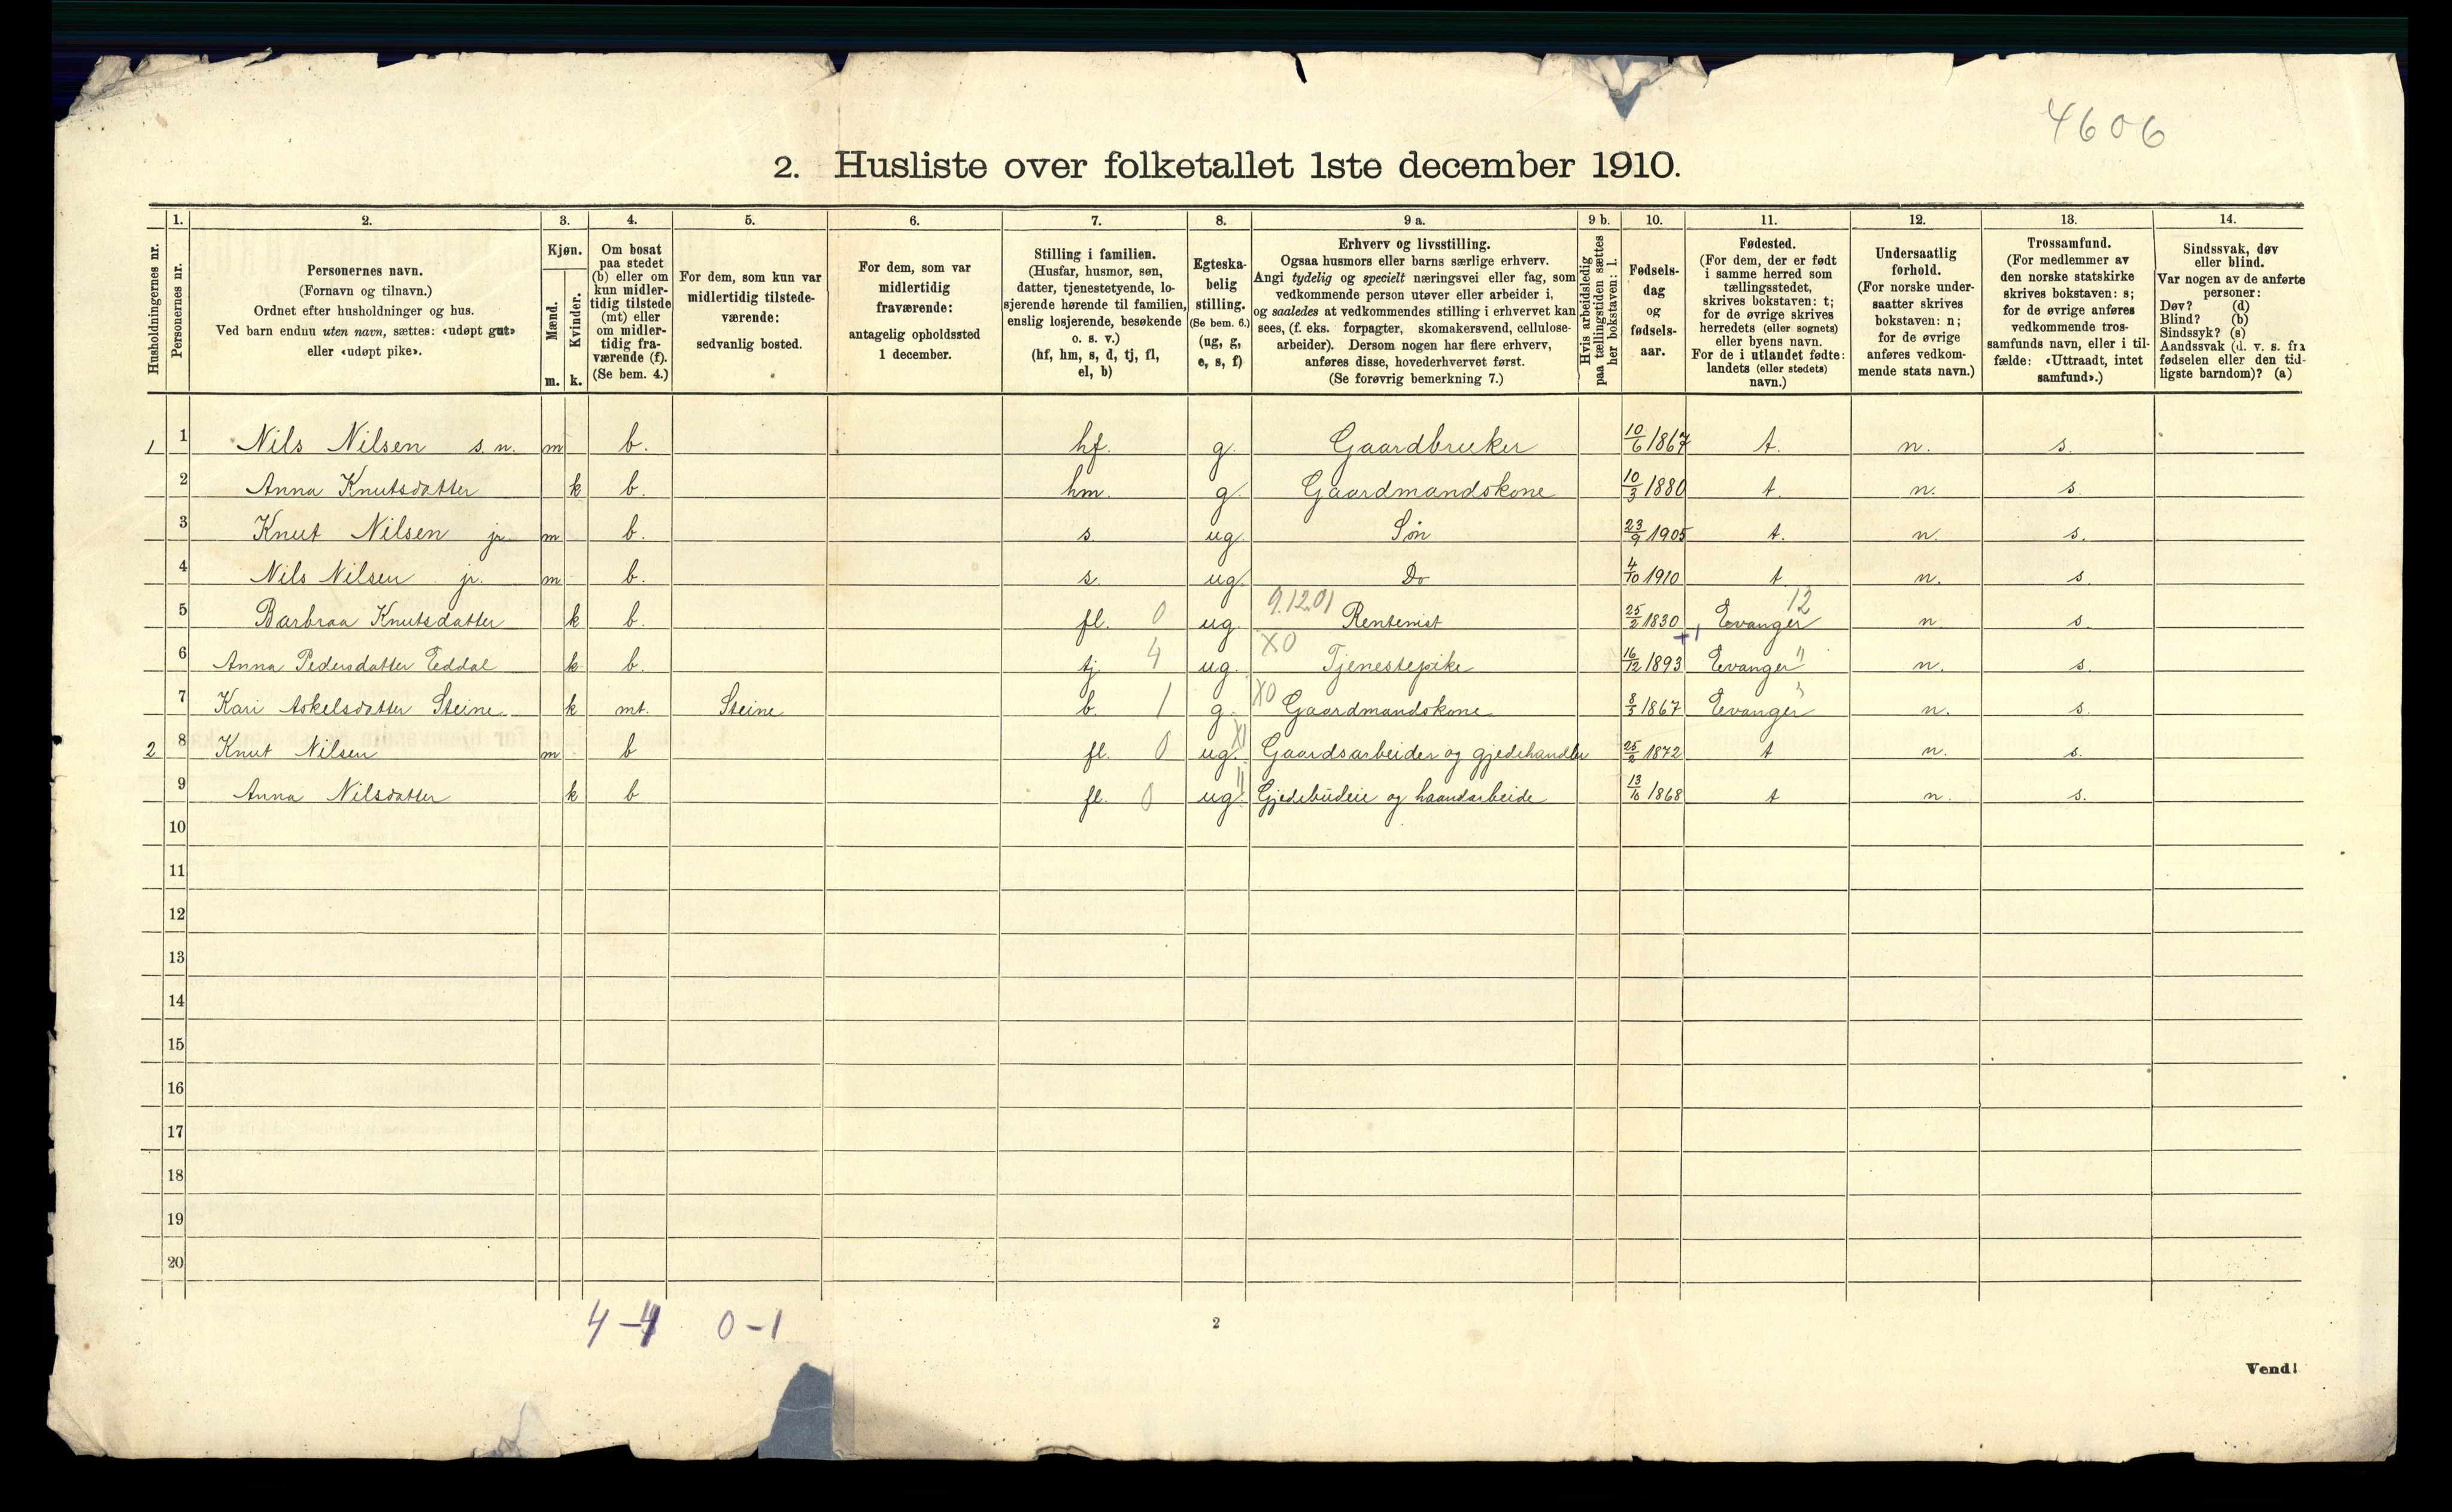 4606
2. Husliste over folketallet 1ste december 1910.
Husholdningernes nr.
1.
Personernes nr.
2.
Personernes navn.
(Fornavn og tilnavn.)
Ordnet efter husholdninger og hus.
Ved barn endnu uten navn, sættes: «udøpt gut»
eller «udøpt pike».
3.
Kjøn.
Mænd.
m.
Kvinder.
k.
4.
Om bosat
paa stedet
(b) eller om
kun midler-
tidig tilstede
(mt) eller
om midler-
tidig fra-
værende (f).
(Se bem. 4.)
5.
For dem, som kun var
midlertidig tilstede-
værende:
sedvanlig bosted.
6.
For dem, som var
midlertidig
fraværende:
antagelig opholdssted
1 december.
7.
Stilling i familien.
(Husfar, husmor, søn,
datter, tjenestetyende, lo-
sjerende hørende til familien,
enslig losjerende, besøkende
o. s. v.)
(hf, hm, s, d, tj, fl,
el, b)
8.
Egteska-
belig
stilling.
(Se bem. 6.)
(ug, g,
e, s, f)
9 a.
Erhverv og livsstilling.
Ogsaa husmors eller barns særlige erhverv.
Angi tydelig og specielt næringsvei eller fag, som
vedkommende person utøver eller arbeider i,
og saaledes at vedkommendes stilling i erhvervet kan
sees, (f. eks. forpagter, skomakersvend, cellulose-
arbeider). Dersom nogen har flere erhverv,
anføres disse, hovederhvervet først.
(Se forøvrig bemerkning 7.)
9 b.
Hvis arbeidsledig
paa tællingstiden sættes
her bokstaven: l.
10.
Fødsels-
dag
og
fødsels-
aar.
11.
Fødested.
(For dem, der er født
i samme herred som
tællingsstedet,
skrives bokstaven: t;
for de øvrige skrives
herredets (eller sognets)
eller byens navn.
For de i utlandet fødte:
landets (eller stedets)
navn.)
12.
Undersaatlig
forhold.
(For norske under-
saatter skrives
bokstaven: n;
for de øvrige
anføres vedkom-
mende stats navn.)
13.
Trossamfund.
(For medlemmer av
den norske statskirke
skrives bokstaven: s;
for de øvrige anføres
vedkommende tros-
samfunds navn, eller i til-
fælde: «Uttraadt, intet
samfund».)
14.
Sindssvak, døv
eller blind.
Var nogen av de anførte
personer:
Døv? (d)
Blind? (b)
Sindssyk? (s)
Aandssvak (d. v. s. fra
fødselen eller den tid-
ligste barndom)? (a)
1 1 Nils Nilsen s.n. m b. hf. g. Gaardbruker 10/6 1867 t. n. s.
2 Anna Knutsdatter k b. hm. g. Gaardmandskone 10/3 1880 t. n. s.
3 Knut Nilsen jr. m b. s. ug. Søn 23/9 1905 t. n. s.
4 Nils Nilsen jr. m b. s. ug. Do 4/10 1910 t n. s.
9.12.01 12
5 Barbraa Knutsdatter k b. fl. 0 ug. Rentenist 25/2 1830 Evanger n s
X0 +1
6 Anna Pedersdatter Eddal k b. tj 4 ug. Tjenestepike 16/12 1893 Evanger " n. s.
7 Kari Askelsdatter Steine k mt. Steine b. 1 g. X0 Gaardmandskone 8/3 1867 Evanger " n. s.
2 8 Knut Nilsen m b fl. 0 ug. Gaardsarbeider og gjedehandler 25/2 1872 t n. s.
9 Anna Nilsdatter k b fl. 0 ug. " Gjedebudeie og haandarbeide 13/10 1868 t n. s.
10
11
12
13
14
15
16
17
18
19
20
4-4 0-1
2
Vend!